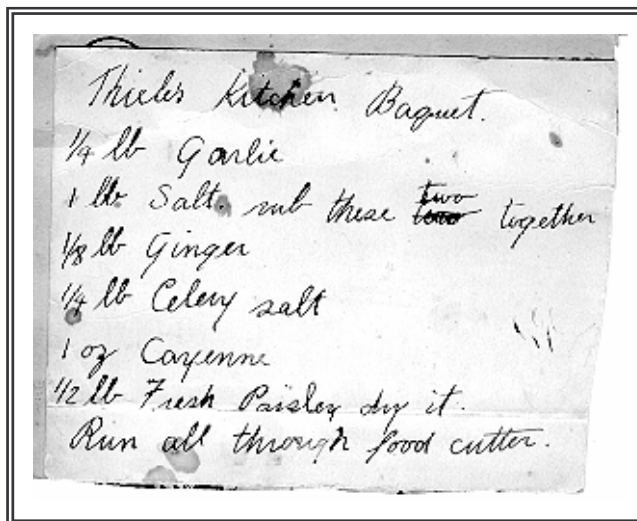 Thieles Kitchen Baquet.
1/4 lb Garlic
1 lb Salt. rub these two together
1/8 lb Ginger
1/4 lb Celery salt
1 oz Cayenne
1/2 lb Fresh Paisley dry it.
Run all through food cutter.